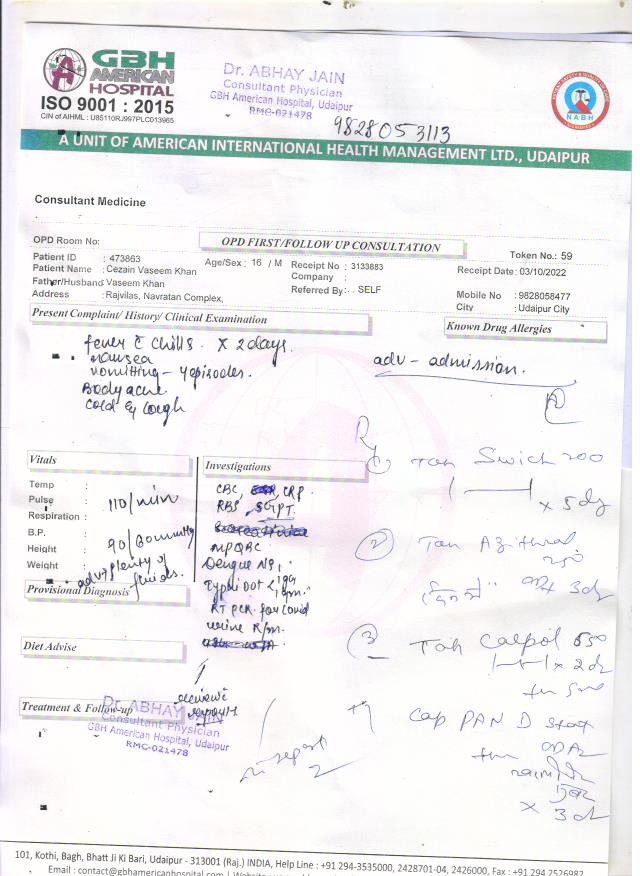 GBH
AMERICAN
HOSPITAL
ISO 9001 : 2015
CIN of AIHML : U85110RJ997PLC013965
Dr. ABHAY JAIN
Consultant Physician
GBH American Hospital, Udaipur
RMC-021478
9828053113
NABH
A UNIT OF AMERICAN INTERNATIONAL HEALTH MANAGEMENT LTD., UDAIPUR
Consultant Medicine
OPD Room No:
OPD FIRST/FOLLOW UP CONSULTATION
Token No.: 59
Patient ID : 473863
Age/Sex : 16 / M
Receipt No : 3133883
Receipt Date : 03/10/2022
Patient Name : Cezain Vaseem Khan
Company :
Father/Husband Vaseem Khan
Referred By : . SELF
Mobile No : 9828058477
Address : Rajvilas, Navratan Complex,
City : Udaipur City
Present Complaint/ History/ Clinical Examination
Known Drug Allergies
fever c chills. x 2 days.
nausea
vomitting - 4 episodes.
Body ache
cold & cough
adv - admission.
Vitals
Temp :
Pulse : 110/min
Respiration :
B.P. : 90/60 mmHg
Height :
Weight :
adv plenty of
fluids.
Provisional Diagnosis
Diet Advise
Treatment & Follow-up
Investigations
CBC, CRP.
RBS, SGPT.
MPQBC
Dengue NS1
Typhi Dot IgG
IgM
RT PCR for Covid
urine R/m.
review c
reports
Dr. ABHAY JAIN
Consultant Physician
GBH American Hospital, Udaipur
RMC-021478
Rx
1 Tab Swich 200
x 5 d
2 Tab Azithral
250
x 3d
3 Tab Calpol 650
x 2d
Cap PAN D
x 3d
101, Kothi, Bagh, Bhatt Ji Ki Bari, Udaipur - 313001 (Raj.) INDIA, Help Line : +91 294-3535000, 2428701-04, 2426000, Fax : +91 294 2526982
Email : contact@gbhamericanhospital.com